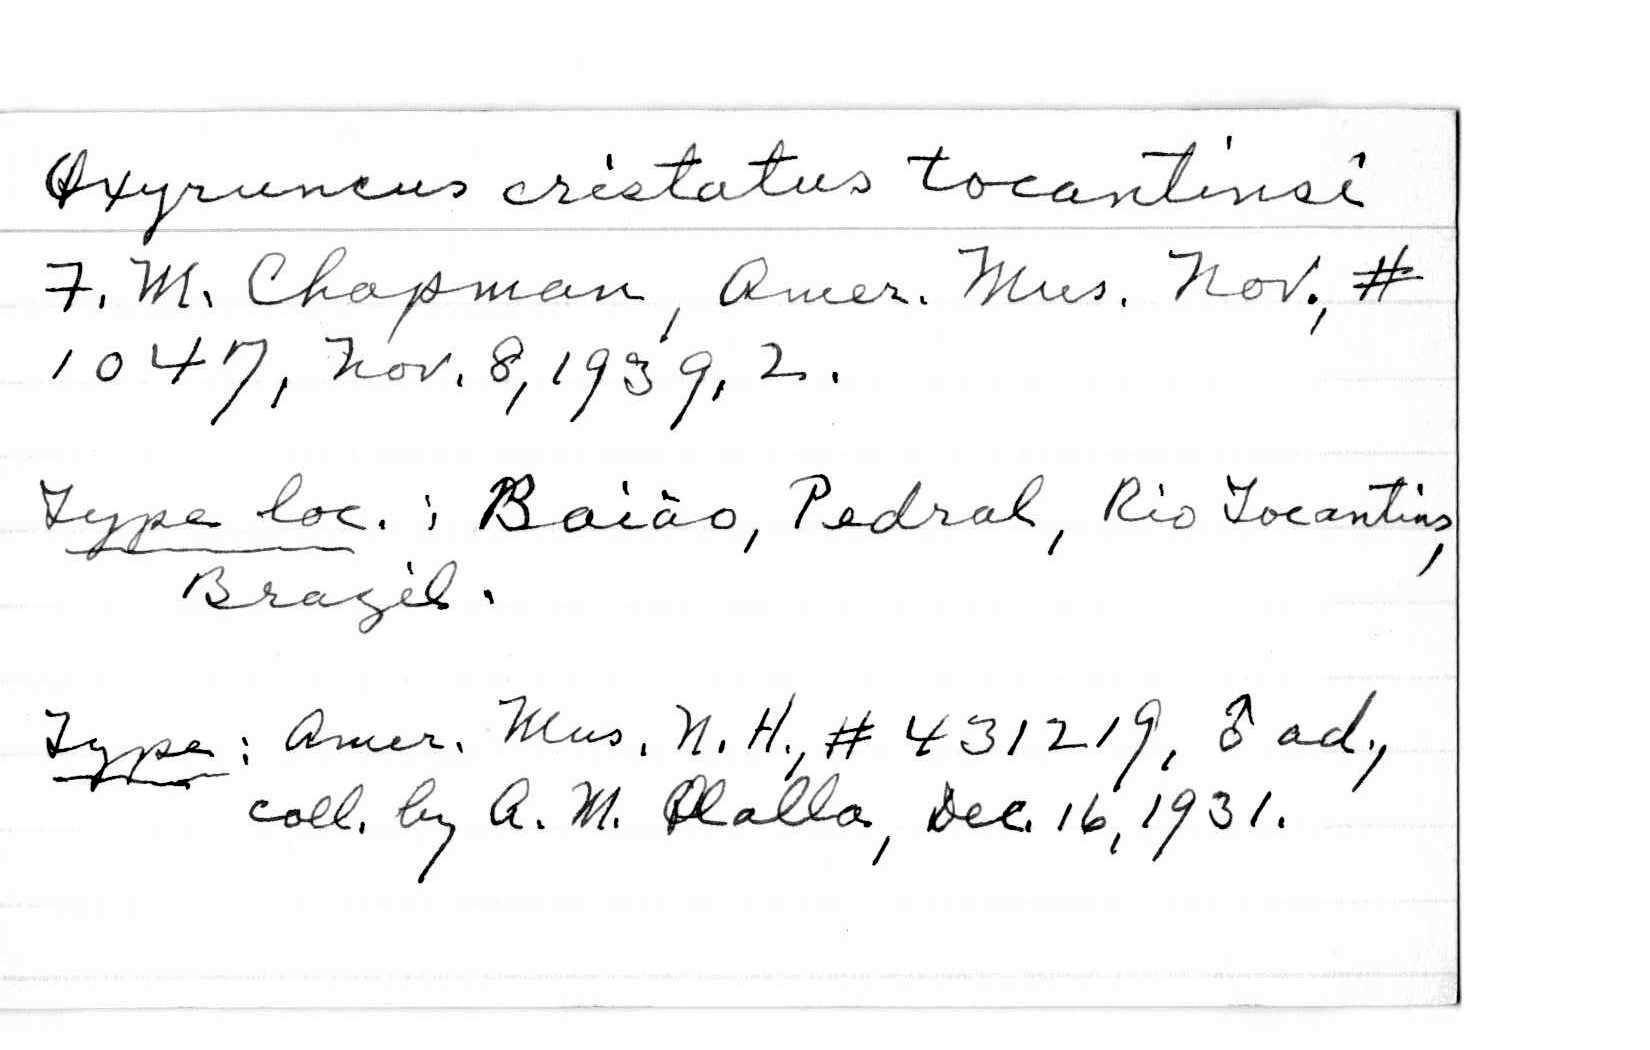 Oxyruncus cristatus tocantinsi
F. M. Chapman, Amer. Mus. Nov., #
1047, Nov. 8, 1939, 2.
Type loc.: Baião, Pedral, Rio Tocantins,
Brazil.
Type: Amer. Mus. N. H., # 431219, ♂ ad.,
coll. by A. M. Olalla, Dec. 16, 1931.